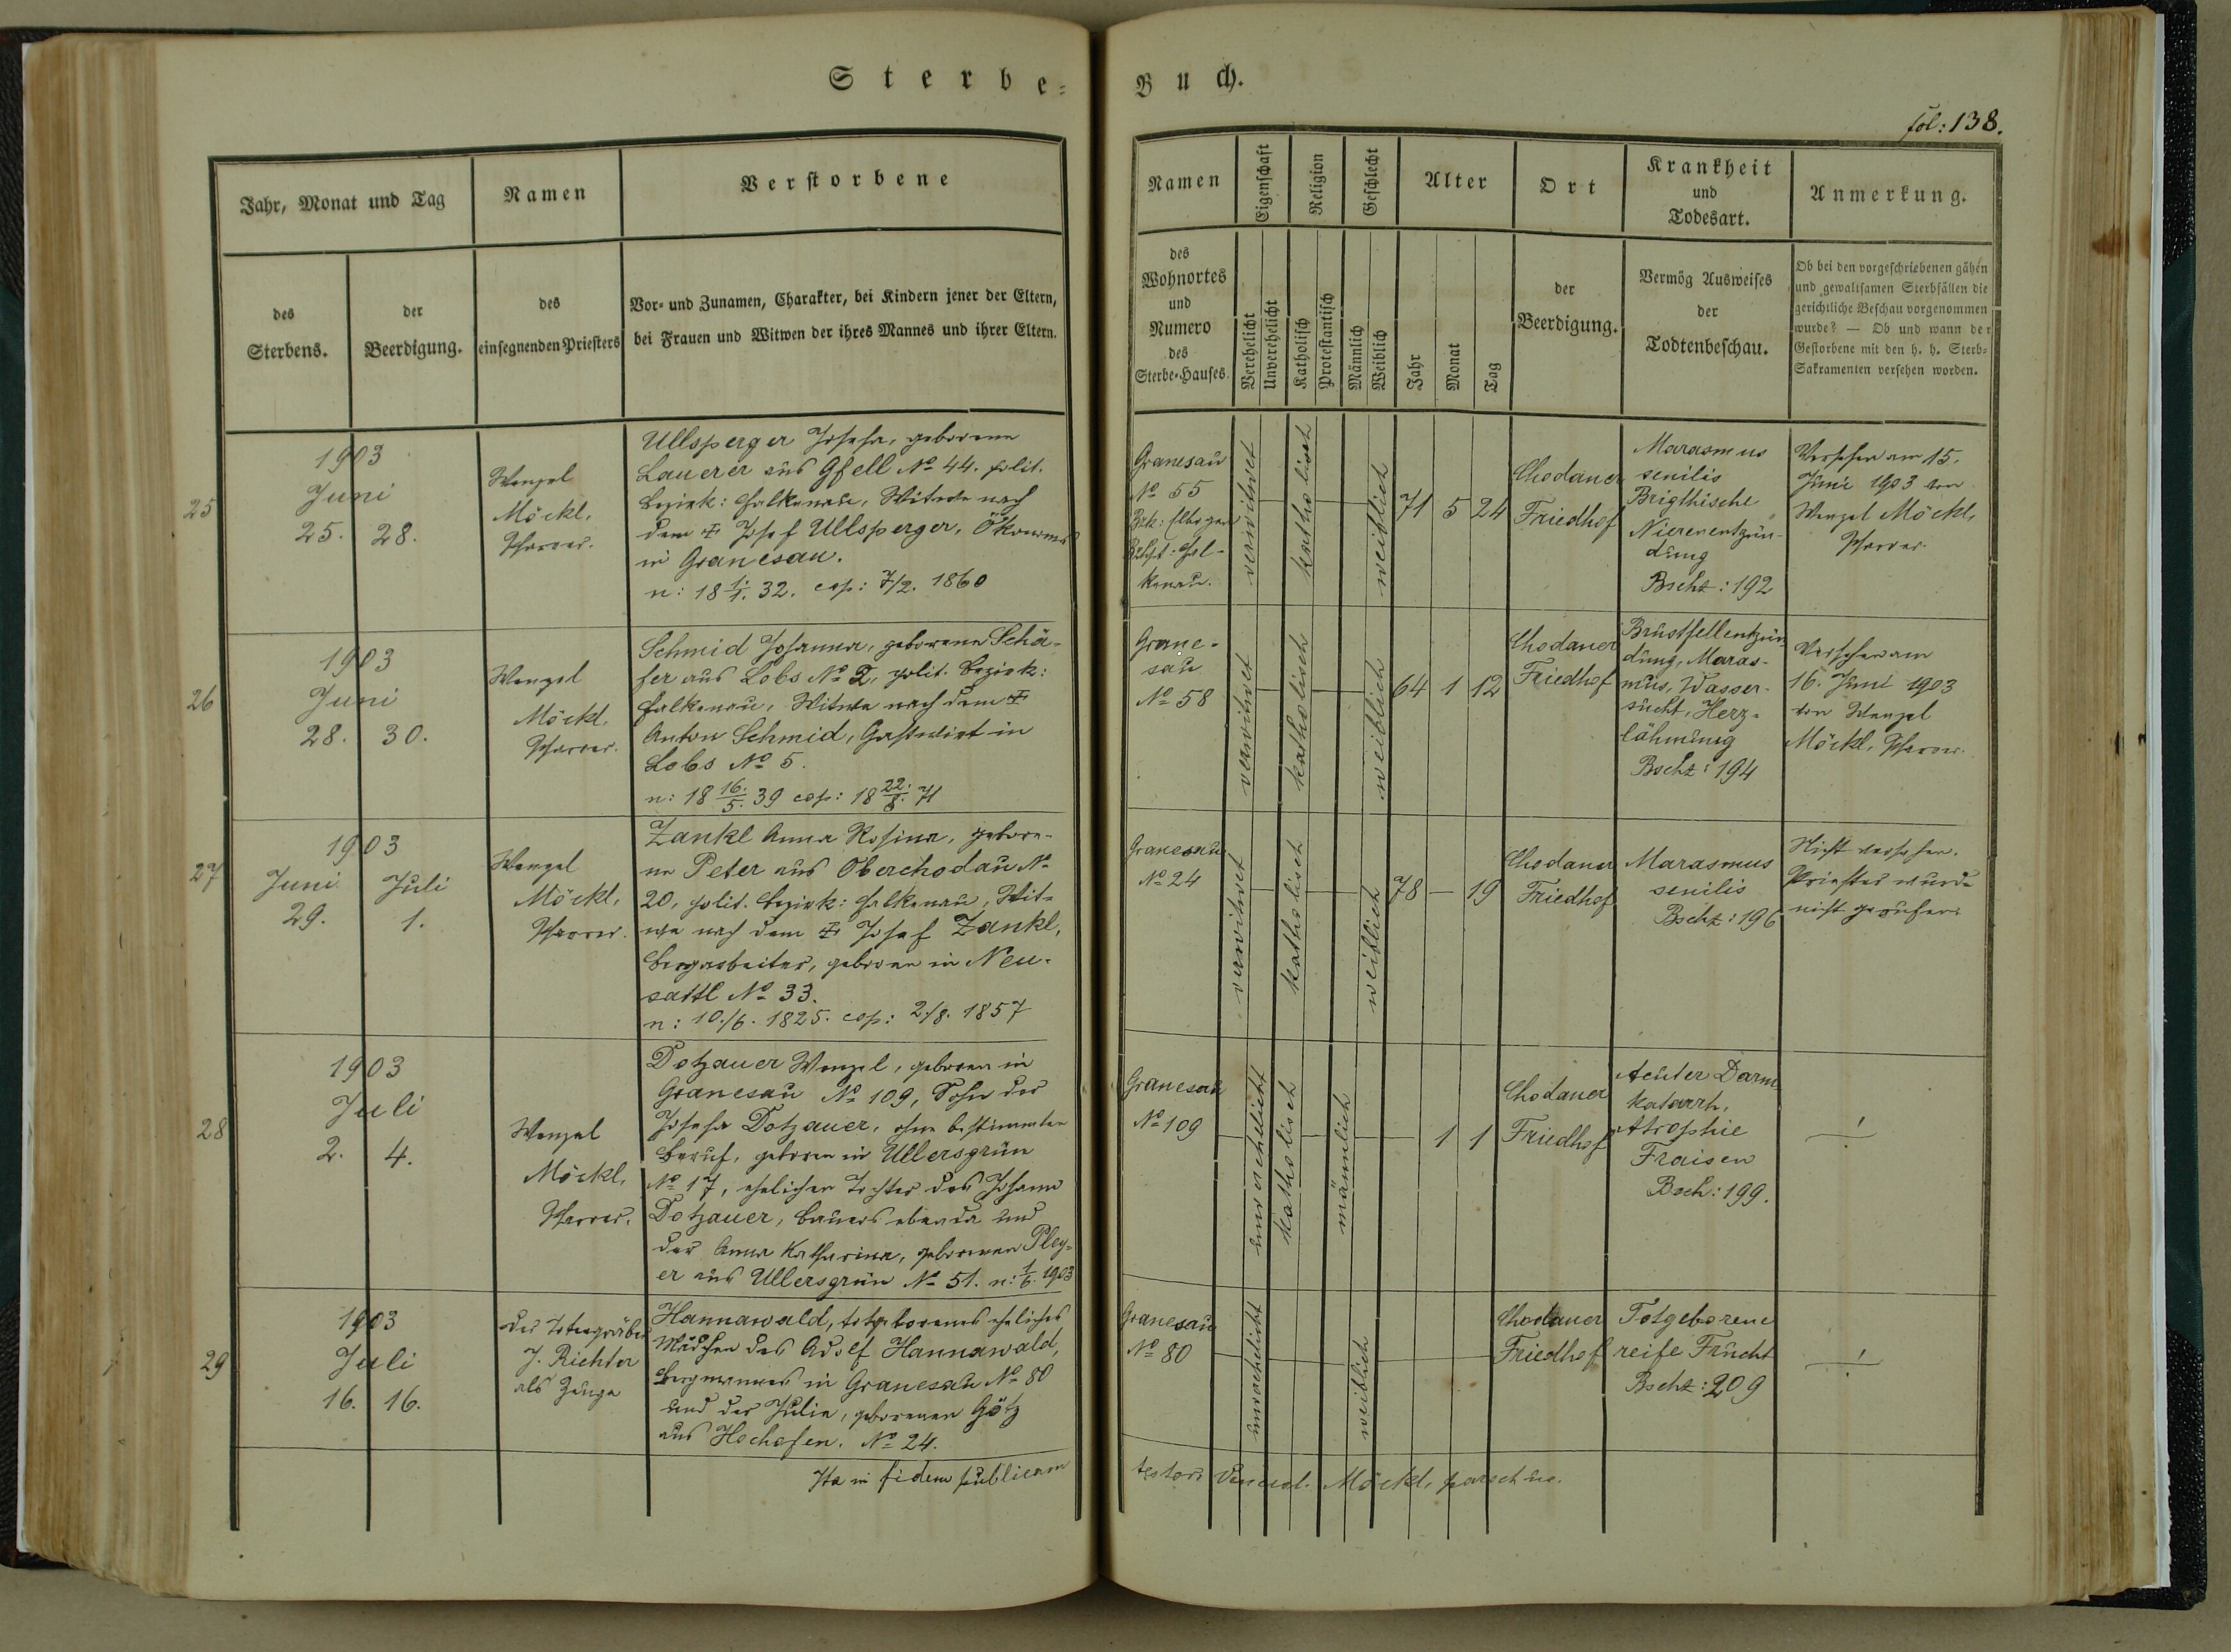 Sterbe=
Buch.
fol: 138.
Jahr, Monat und Tag
Namen
Verstorbene
des
Sterbens.
der
Beerdigung.
des
einsegnenden Priesters
Vor- und Zunamen, Charakter, bei Kindern jener der Eltern,
bei Frauen und Witwen der ihres Mannes und ihrer Eltern.
Namen
Eigenschaft
Religion
Geschlecht
Alter
Ort
Krankheit
und
Todesart.
Anmerkung.
des
Wohnortes
und
Numero
des
Sterbe-Hauses.
Verehelicht
Unverehelicht
Katholisch
Protestantisch
Männlich
Weiblich
Jahr
Monat
Tag
der
Beerdigung.
Vermög Ausweises
der
Todtenbeschau.
Ob bei den vorgeschriebenen gähen
und gewaltsamen Sterbfällen die
gerichtliche Beschau vorgenommen
wurde? — Ob und wann der
Gestorbene mit den h. h. Sterb-
Sakramenten versehen worden.
25
1903
Juni
25. 28.
Wenzel
Möckl,
Pfarrer.
Ullsperger Josefa, geborene
Lauerer aus Gfell No 44. polit.
Bezirk: Falkenau, Witwe nach
dem ‡ Josef Ullsperger, Ökonomen
in Granesau.
n: 18 1./1. 32. cop: 7/2. 1860
Granesau
No 55
Bzk: Elbogen
Bzhpt: Fal-
kenau.
verwitwet
katholisch
weiblich
71 5 24
Chodauer
Friedhof
Marasmus
senilis
Brigthische
Nierenentzün-
dung
Bscht: 192
Versehen am 15.
Juni 1903 von
Wenzel Möckl,
Pfarrer.
26
1903
Juni
28. 30.
Wenzel
Möckl,
Pfarrer.
Schmid Johanna, geborene Schä-
fer aus Lobs No 2, polit. Bezirk:
Falkenau, Witwe nach dem ‡
Anton Schmid, Gastwirt in
Lobs No 5.
n: 18 16./5. 39 cop: 18 22./8. 71
Grane-
sau
No 58
verwitwet
katholisch
weiblich
64 1 12
Chodauer
Friedhof
Brustfellentzün-
dung, Maras-
mus, Wasser-
sucht, Herz-
lähmung
Bscht: 194
Versehen am
16. Juni 1903
von Wenzel
Möckl, Pfarrer.
27
1903
Juni Juli
29. 1.
Wenzel
Möckl,
Pfarrer.
Zankl Anna Rosina, gebore-
ne Peter aus Oberchodau No
20, polit. Bezirk: Falkenau, Wit-
we nach dem ‡ Josef Zankl,
Bergarbeiter, geboren in Neu-
sattl No 33.
n: 10./6. 1825. cop: 2./8. 1857
Granesau
No 24
verwitwet
katholisch
weiblich
78 — 19
Chodauer
Friedhof
Marasmus
senilis
Bscht: 196
Nicht versehen.
Priester wurde
nicht gerufen.
28
1903
Juli
2. 4.
Wenzel
Möckl,
Pfarrer.
Dotzauer Wenzel, geboren in
Granesau No 109, Sohn der
Josefa Dotzauer, ohne bestimmten
Beruf, geboren in Ullersgrün
No 17, ehelichen Tochter des Johann
Dotzauer, Bauers ebenda und
der Anna Katharina, geborenen Pley-
er aus Ullersgrün No 51. n: 1/6. 1903
Granesau
No 109
unverehelicht
katholisch
männlich
1 1
Chodauer
Friedhof
Acuter Darm-
katarrh,
Atrophie
Fraisen
Bsch: 199.
29
1903
Juli
16. 16.
der Totengräber
J. Richter
als Zeuge
Hannawald, totgeborenes eheliches
Mädchen des Adolf Hannawald,
Bergmannes in Granesau No 80
und der Julie, geborenen Götz
aus Hochofen. No 24.
Granesau
No 80
unverehelicht
weiblich
Chodauer
Friedhof
Totgeborene
reife Frucht
Bscht: 209
Ita in fidem publicam
testor: Vencesl. Möckl, parochus.